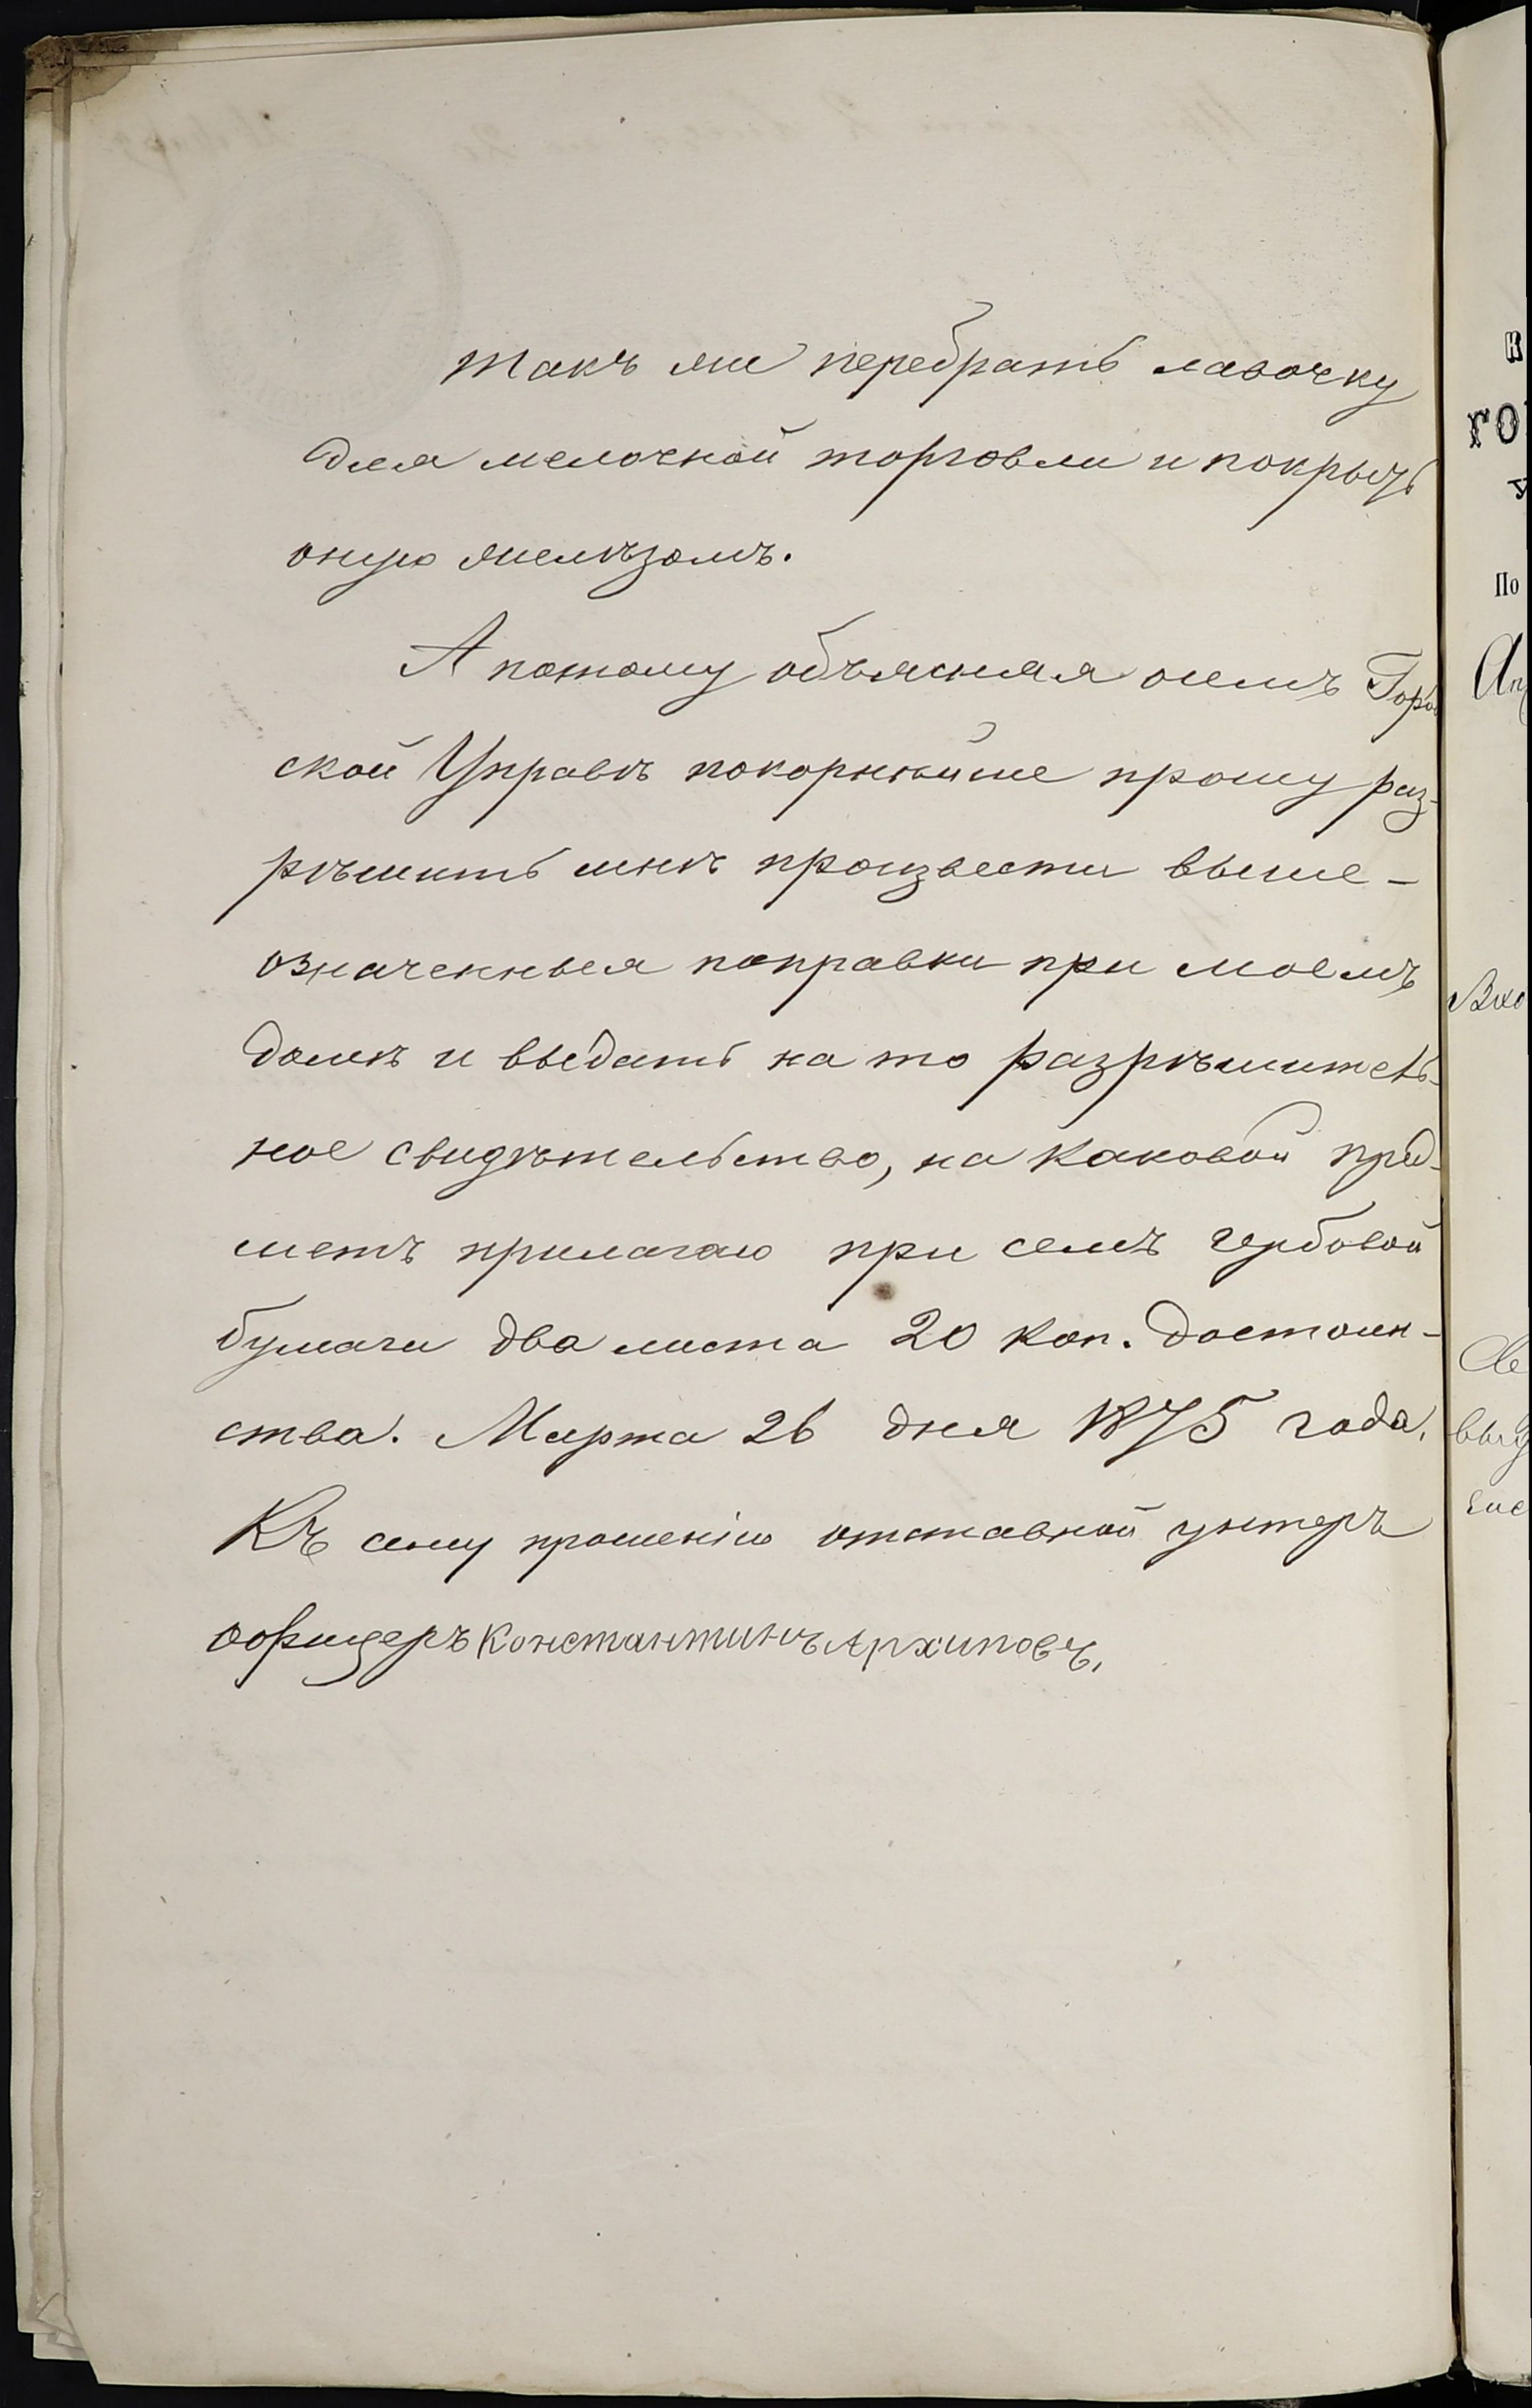 такъ же перебрать лавочку
для мелочной торговли и покрыть
оную желѣзомъ.
А потому объясняя о семъ Город
ской Управѣ покорнѣйше прошу раз-
рѣшить мнѣ произвести выше-
означенныя поправки при моемъ
домѣ и выдать на то разрѣшитель-
ное свидѣтельство, на каковой пред-
метъ прилагаю при семъ гербовой
бумаги два листа 20 коп. достоин-
ства. Марта 26 дня 1875 года.
Къ сему прошенію отставной унтеръ
офицеръ Константинъ Архиповъ.
По